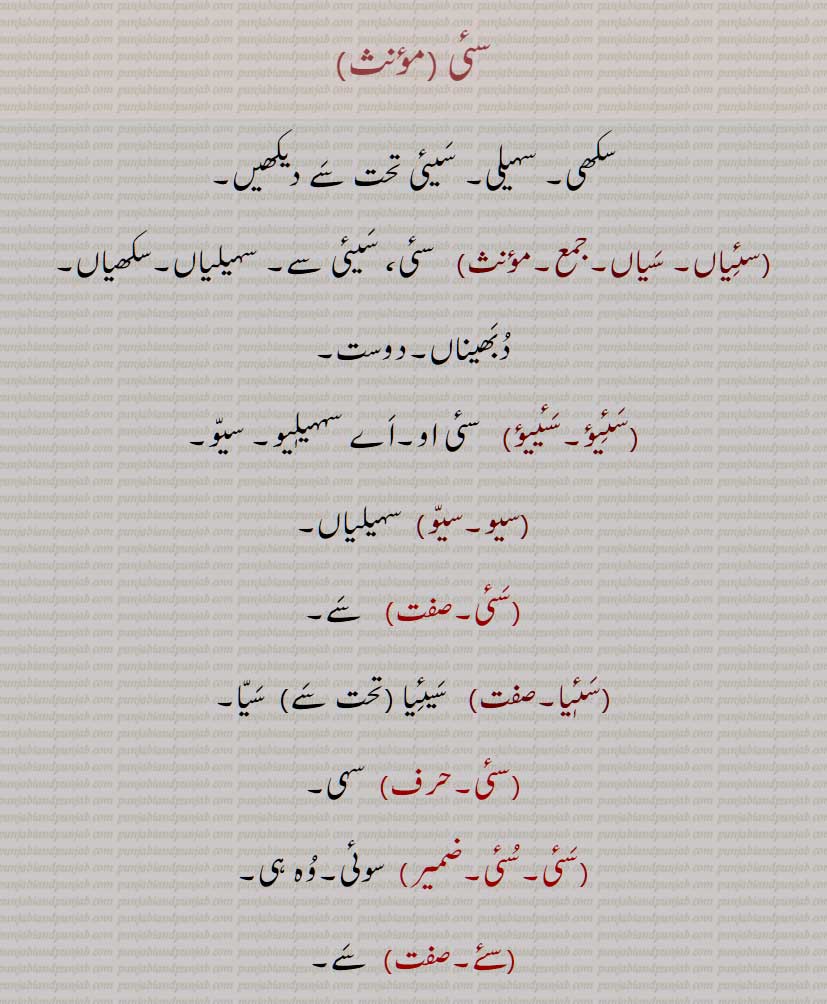 سئی (مؤنث)
سکھی۔ سہیلی۔ سَیئی تحت سَے دیکھیں۔
(سئِیاں۔ سَیاں۔جمع۔مؤنث) سئی، سَیئی سے۔ سہیلیاں۔سکھیاں۔
دُبَھیناں۔دوست۔
(سَئِیؤ۔سَئیؤ) سئی او۔اَے سہیلیو۔ سیوّ۔
(سیو۔سیوّ) سہیلیاں۔
(سَئی۔صفت) سَے۔
(سَئیا۔صفت) سَیئِیا (تحت سَے) سَیّا۔
(سئی۔حرف) سہی۔
(سَئی۔سُئی۔ضمیر) سوئی۔وُہ ہی۔
(سئے۔صفت) سَے۔